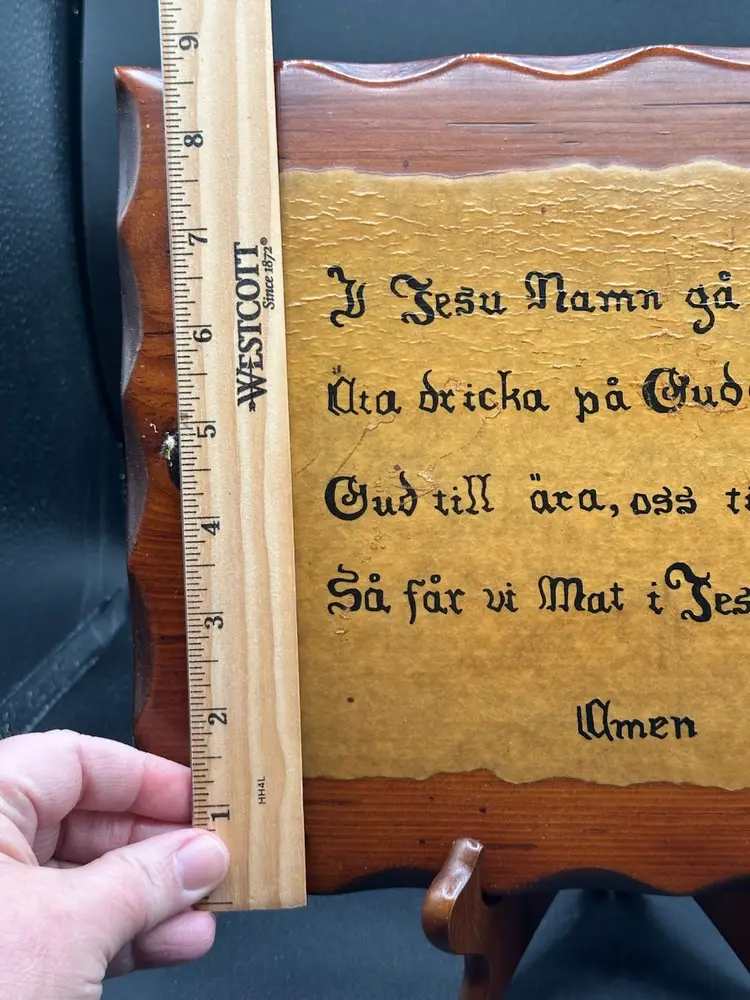 9
8
7
6
5
4
3
2
1
WESTCOTT
Since 1872®
HH4L
I Jesu Namn gå
Äta dricka på Guds
Gud till ära, oss ti
Så får vi Mat i Jes
Amen